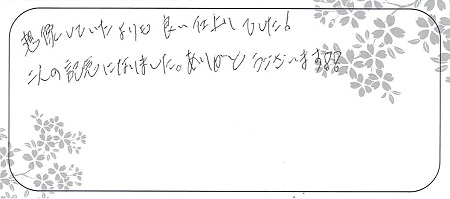 想像していたよりも良い仕上りでした!
この記念になりました。ありがとうございます!!